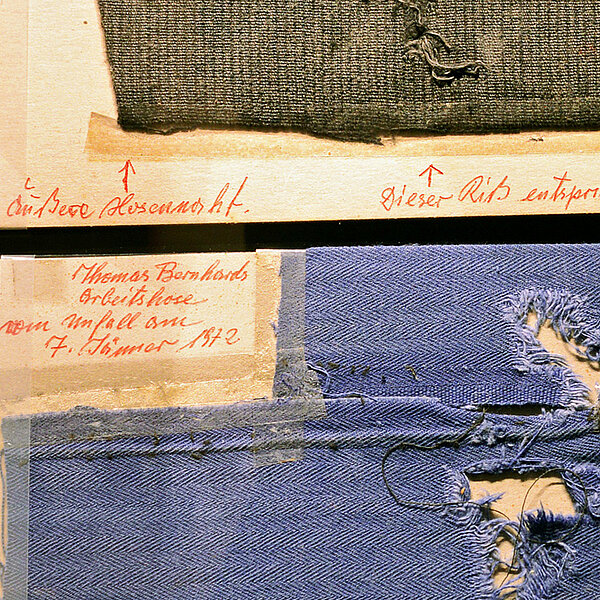 Äußere Hosennaht.
Dieser Riß entspri
Thomas Bernhards
Arbeitshose
vom Unfall am
7. Jänner 1972